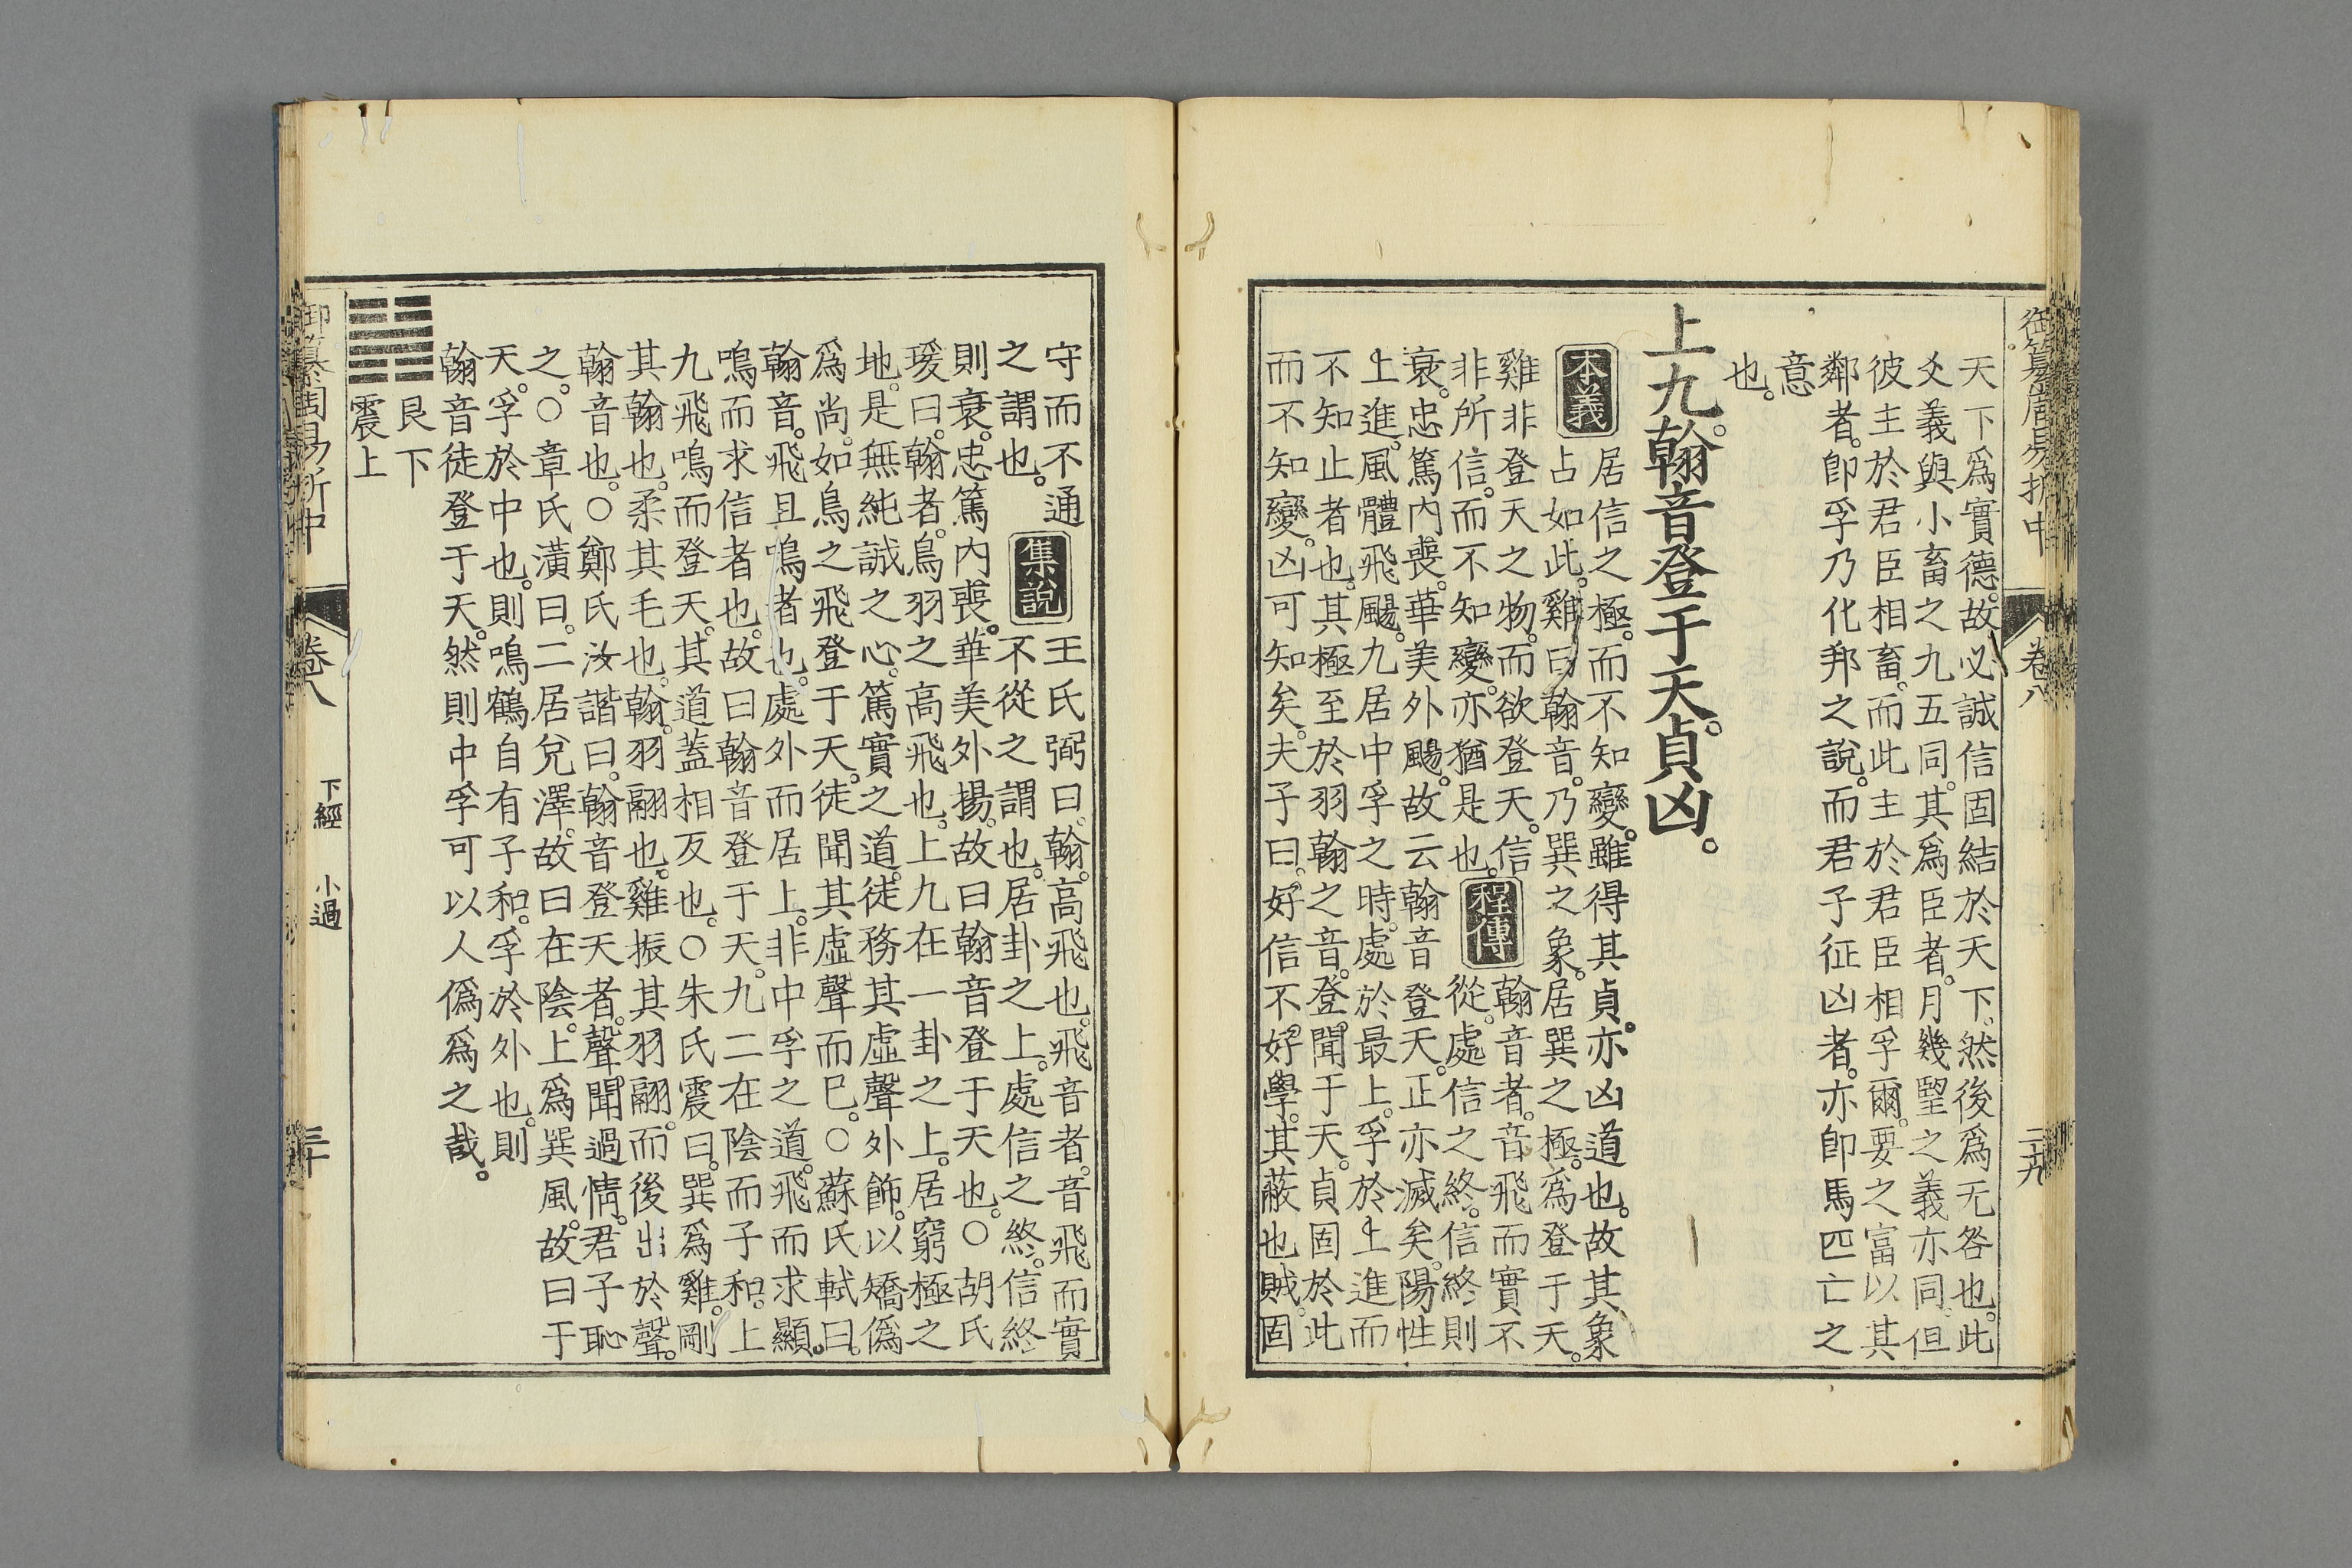 御纂周易折中 卷八 二十九
天下爲實德。故必誠信固結於天下。然後爲无咎也。此
爻義與小畜之九五同。其爲臣者。月幾望之義亦同。但
彼主於君臣相畜。而此主於君臣相孚爾。要之富以其
鄰者。卽孚乃化邦之說。而君子征凶者。亦卽馬匹亡之
意
也。
上九。翰音登于天。貞凶。
本義
居信之極。而不知變。雖得其貞。亦凶道也。故其象
占如此。雞曰翰音。乃巽之象。居巽之極。爲登于天。
雞非登天之物。而欲登天。信
非所信。而不知變。亦猶是也。
程傳
翰音者。音飛而實不
從。處信之終。信終則
衰。忠篤內喪。華美外颺。故云翰音登天。正亦滅矣。陽性
上進。風體飛颺。九居中孚之時。處於最上。孚於上進而
不知止者也。其極至於羽翰之音。登聞于天。貞固於此
而不知變。凶可知矣。夫子曰。好信不好學。其蔽也賊。固
守而不通
之謂也。
集說
王氏弼曰。翰。高飛也。飛音者。音飛而實
不從之謂也。居卦之上。處信之終。信終
則衰。忠篤內喪。華美外揚。故曰翰音登于天也。○胡氏
瑗曰。翰者。鳥羽之高飛也。上九在一卦之上。居窮極之
地。是無純誠之心。篤實之道。徒務其虛聲外飾。以矯僞
爲尚。如鳥之飛登于天。徒聞其虛聲而巳。○蘇氏軾曰。
翰音。飛且鳴者也。處外而居上。非中孚之道。飛而求顯。
鳴而求信者也。故曰翰音登于天。九二在陰而子和。上
九飛鳴而登天。其道蓋相反也。○朱氏震曰。巽爲雞。剛
其翰也。柔其毛也。翰。羽翮也。雞振其羽翮。而後出於聲。
翰音也。○鄭氏汝諧曰。翰音登天者。聲聞過情。君子恥
之。○章氏潢曰。二居兌澤。故曰在陰。上爲巽風。故曰于
天。孚於中也。則鳴鶴自有子和。孚於外也。則
翰音徒登于天。然則中孚可以人僞爲之哉。
艮下
震上
御纂周易折中 卷八 下經 小過 三十